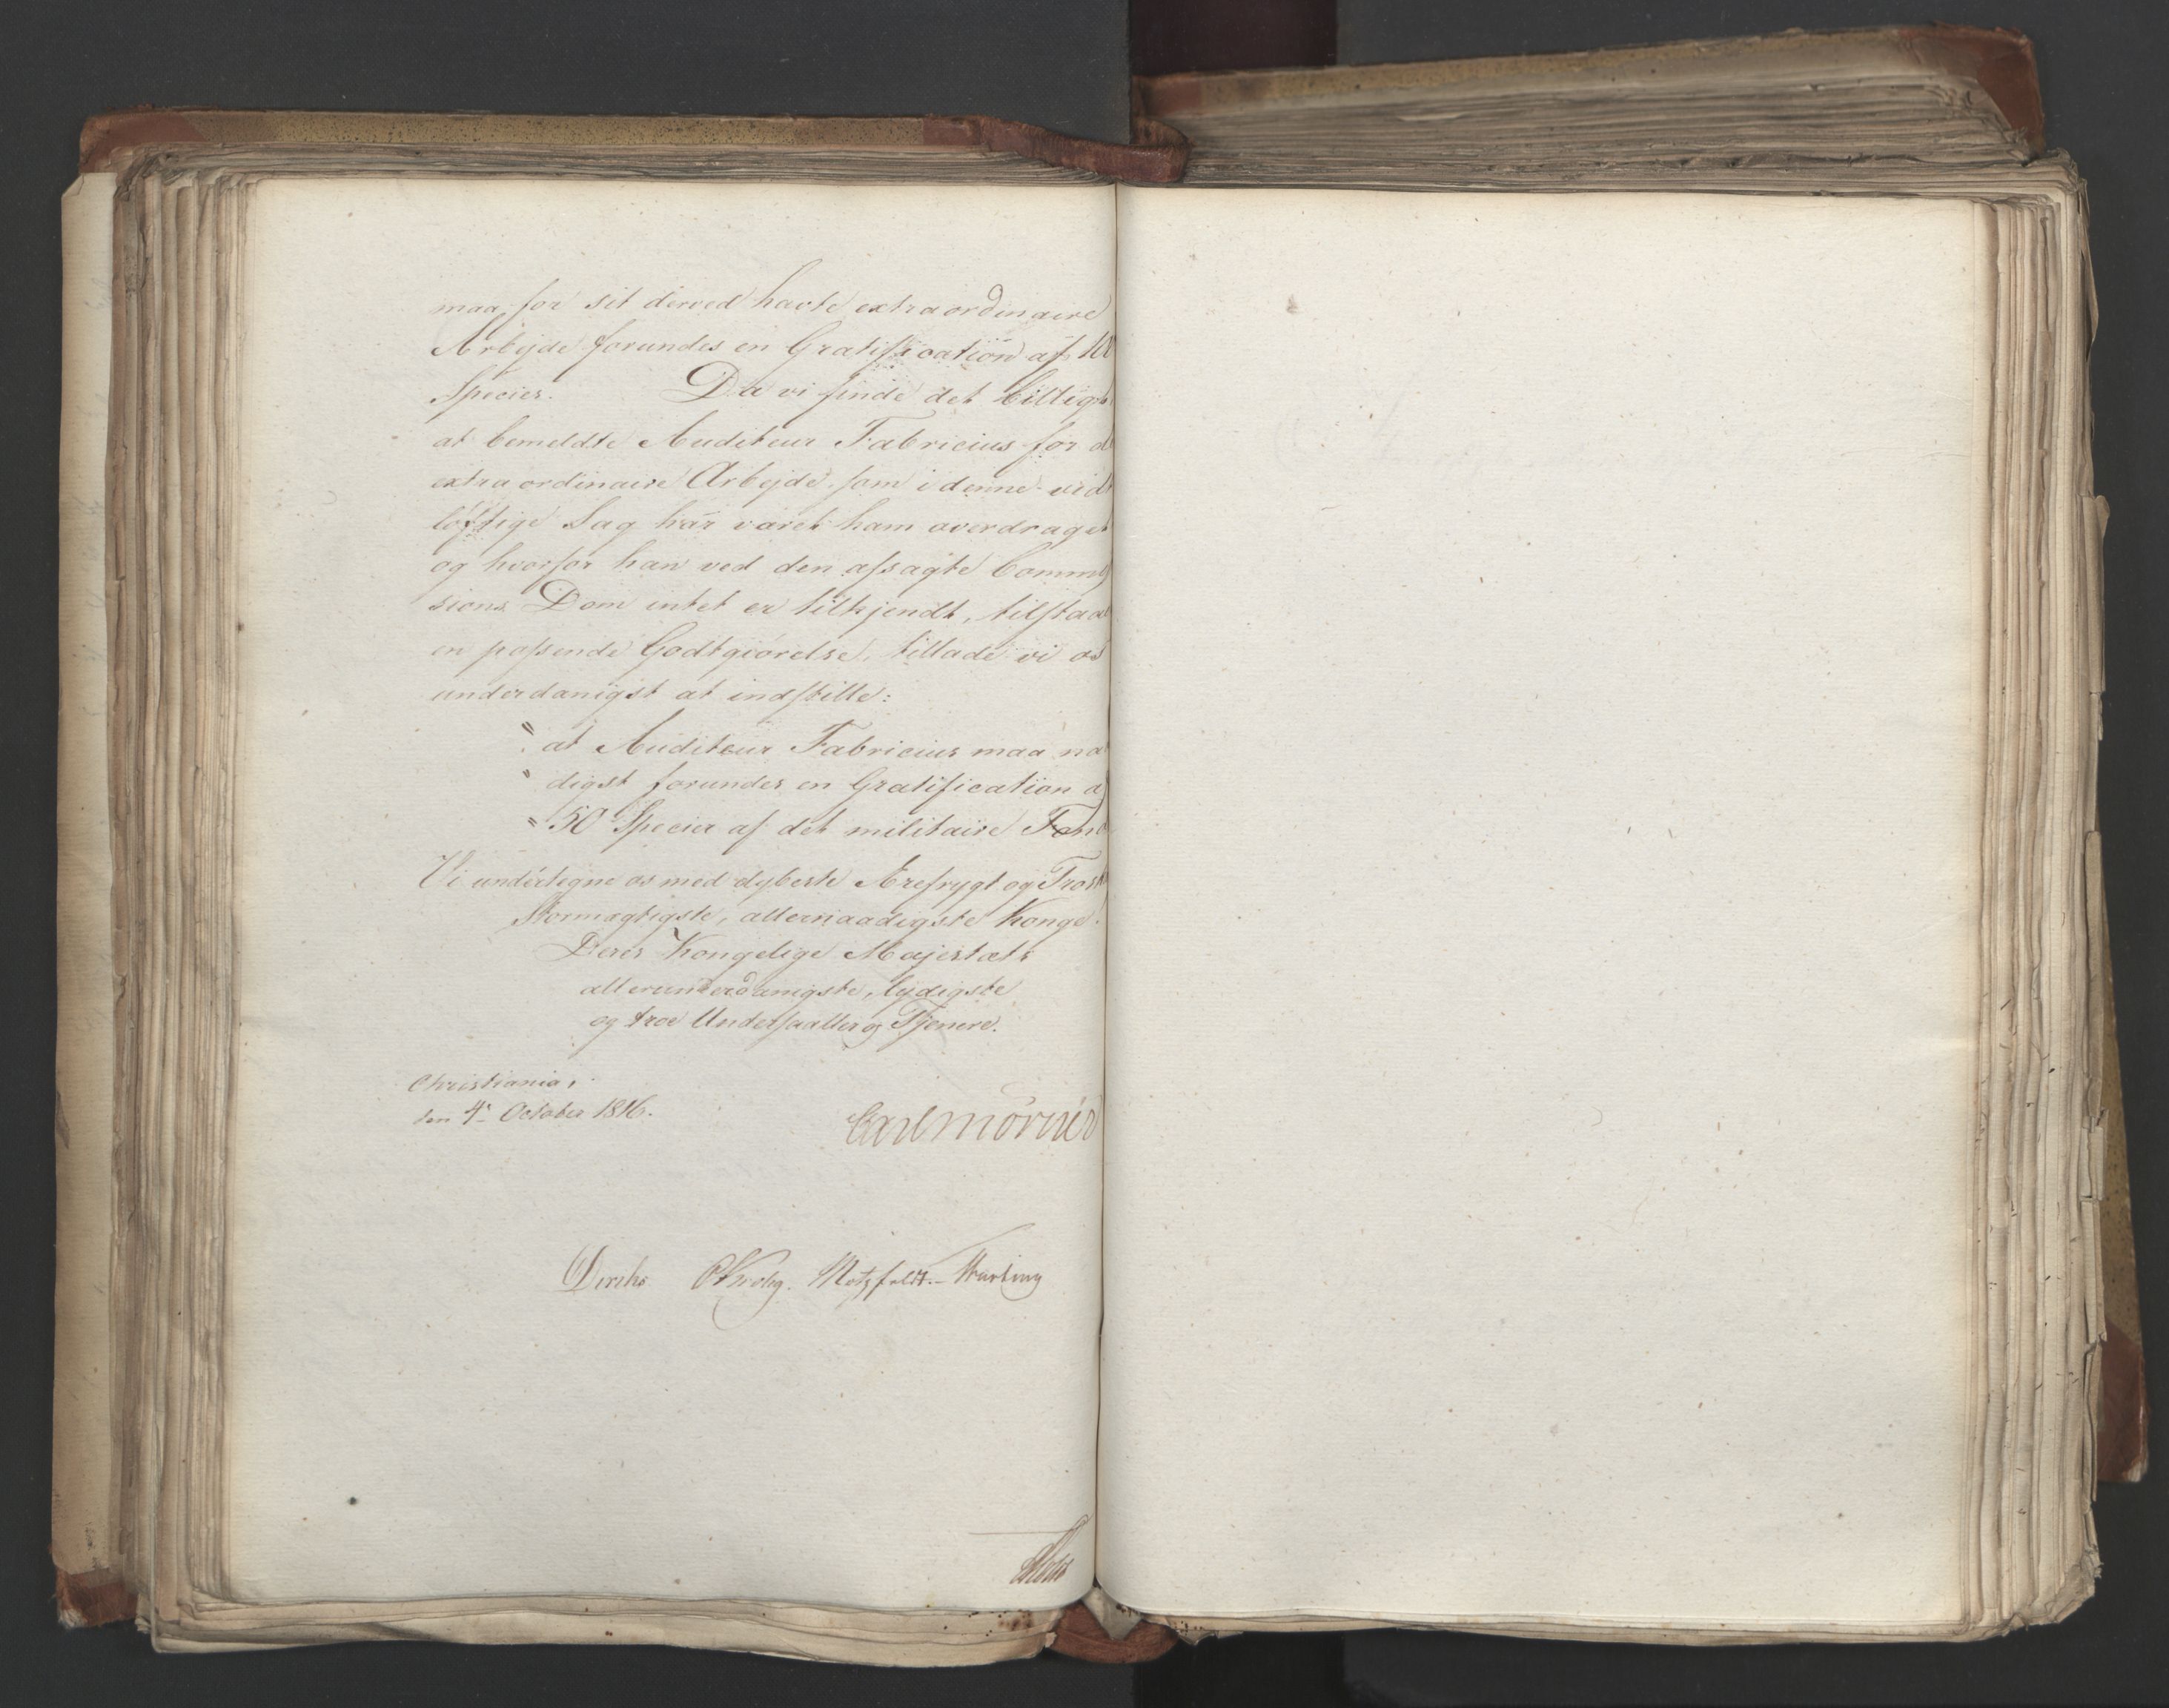 maa for sit derved havte extraordinaire
Arbejde forundes en Gratification af 100
Species. Da vi finde det billigt
at bemeldte Auditeur Fabricius for d
extraordinaire Arbejde som i denne vidt
løftige Sag har været ham overdraget
og hvorfor han ved den afsagte Commis
sions Dom intet er tilkjendt, tilstaaes
en passende Godtgiørelse, tillade vi os
underdanigst at indstille:
" at Auditeur Fabricius maa naa
" digst forundes en Gratification af
" 50 Species af det militaire Fond
Vi undertegne os med dybeste Ærefrygt og Trosk
Stormægtigste, allernaadigste Konge.
Deres Kongelige Majestæts
allerunderdanigste, lydigste
og troe Undersaatter og Tjenere.
Christiania,
den 4de October 1816.
Carl Mörner
Diriks OKrohg. Motzfeldt.
Holst